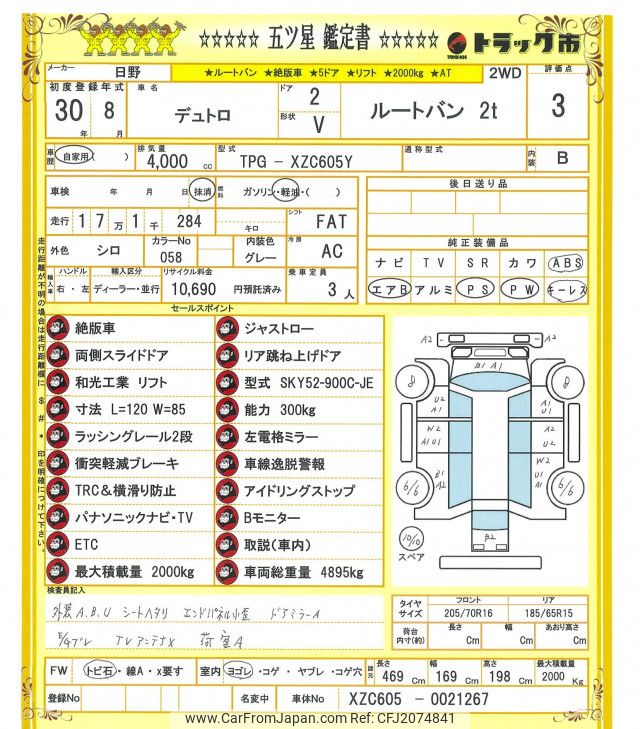 ☆☆☆☆☆ 五ツ星 鑑定書 ☆☆☆☆☆ トラック市
TRUCK-ICHI
メーカー 日野 ★ルートバン ★絶版車 ★5ドア ★リフト ★2000kg ★AT 2WD 評価点
初度登録年式 30年 8月 車名 デュトロ ドア 2 形状 V ルートバン 2t 3
車歴 自家用( ) 排気量 4,000cc 型式 TPG - XZC605Y 通称型式 内装 B
車検 年 月 日 抹消 燃料 ガソリン・軽油・( ) 後日送り品
走行 17万1千284 キロ シフト FAT
外色 シロ カラーNo 058 内装色 グレー 冷房 AC 純正装備品
ナビ TV SR カワ ABS
輸入車 ハンドル 右・左 輸入区分 ディーラー・並行 リサイクル料金 10,690 円預託済み 乗車定員 3人 エアB アルミ PS PW キーレス
走行距離が不明の場合は走行距離欄に $ # * 印を明確につけて下さい。
セールスポイント
絶版車 ジャストロー
両側スライドドア リア跳ね上げドア
和光工業 リフト 型式 SKY52-900C-JE
寸法 L=120 W=85 能力 300kg
ラッシングレール2段 左電格ミラー
衝突軽減ブレーキ 車線逸脱警報
TRC&横滑り防止 アイドリングストップ
パナソニックナビ・TV Bモニター
ETC 取説(車内)
最大積載量 2000kg 車両総重量 4895kg
A2 A2
B1 A1
8 8
U2 A1 A1 U1
W2 A1U1 W2 A2
B1 A2 W2 U1 A1
6/6 6/6
10/10 スペア B2
検査員記入
外装A.B.U シートヘタリ エンドパネル小歪 ドアミラーA
TVアンテナX 荷室A
タイヤサイズ フロント 205/70R16 リア 185/65R15
荷台内寸(約) 長さ Cm 幅 Cm あおり高さ Cm
FW トビ石・線A・X要す 室内 ヨゴレ・コゲ・ヤブレ・コゲ穴 諸元 長さ 469 Cm 幅 169 Cm 高さ 198 Cm 最大積載量 2000 Kg
登録No 名変中 車体No XZC605 - 0021267
www.CarFromJapan.com Ref: CFJ2074841